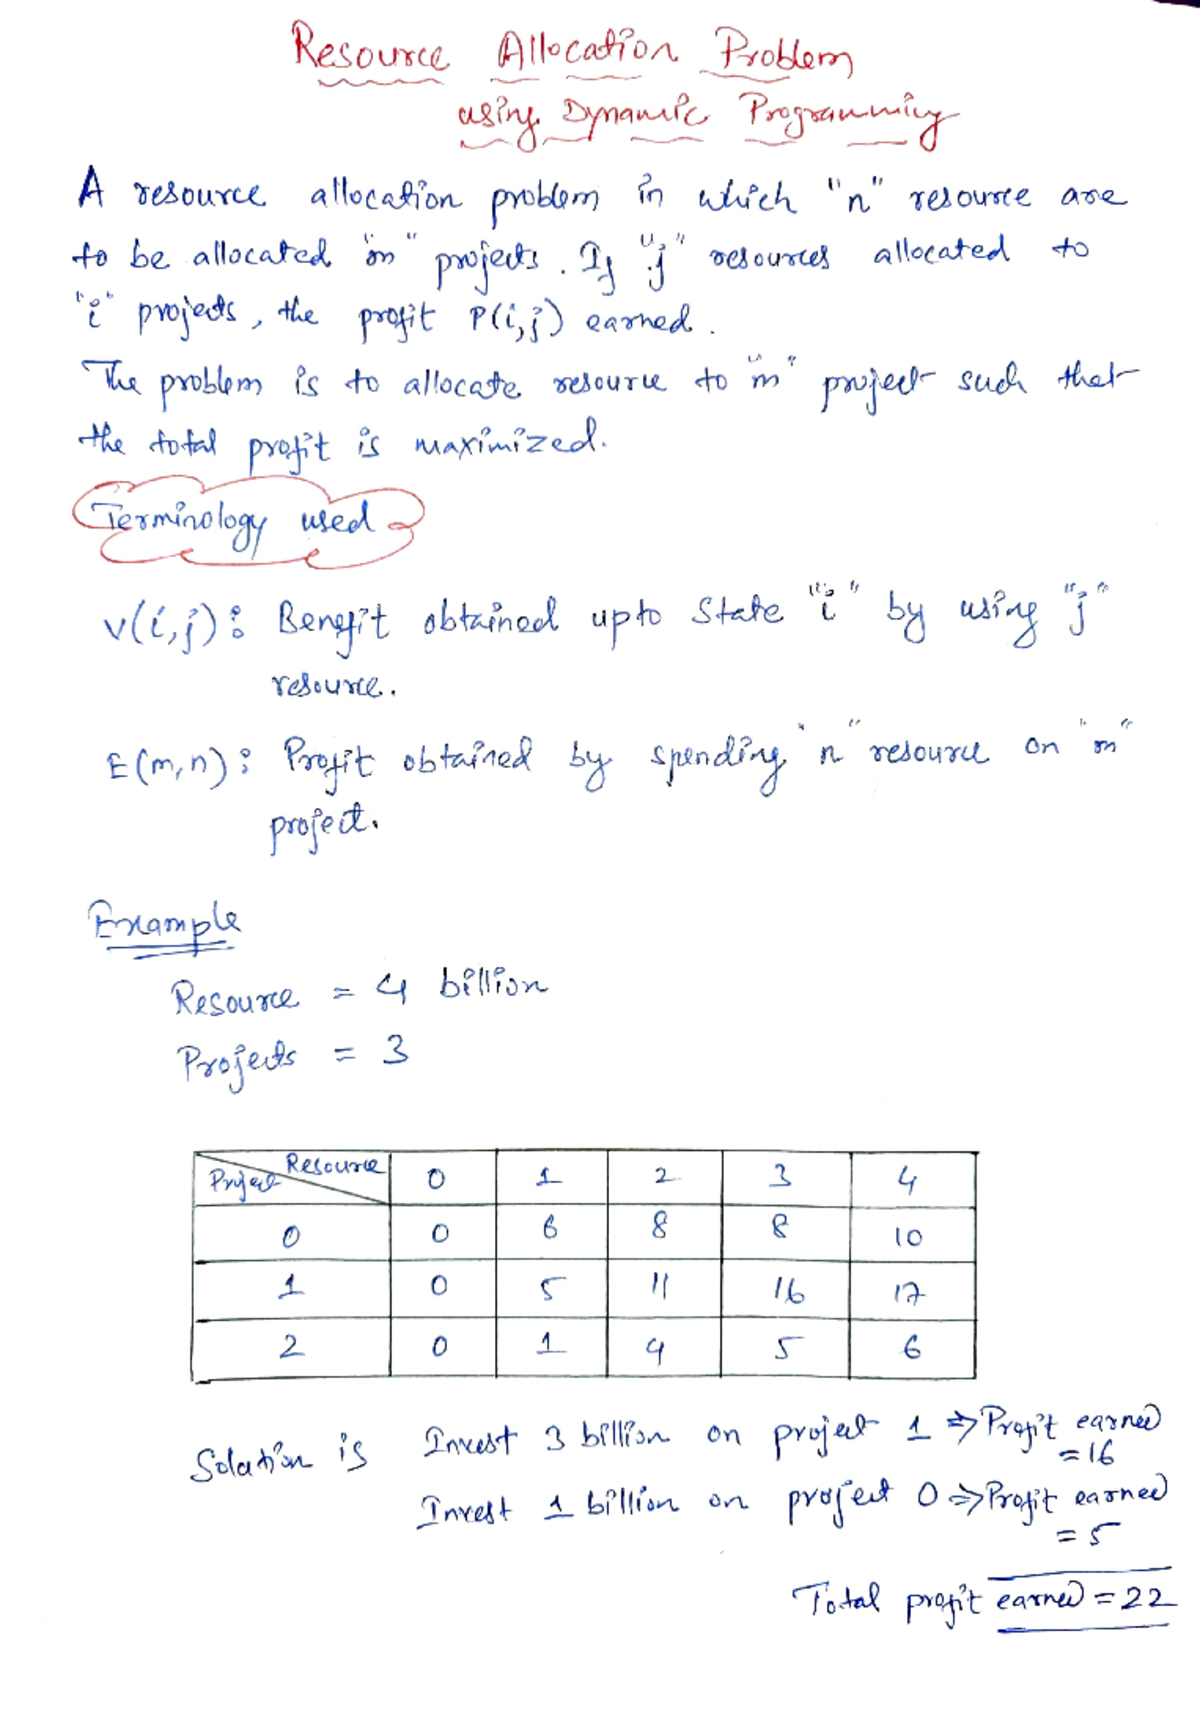 Resource Allocation Problem
using Dynamic Programming
A resource allocation problem in which "n" resource are
to be allocated "m" projects. If "j" resources allocated to
"i" projects, the profit P(i,j) earned.
The problem is to allocate resource to "m" project such that
the total profit is maximized.
Terminology used
v(i,j): Benefit obtained upto State "i" by using "j"
resource.
E(m,n): Profit obtained by spending "n" resource on "m"
project.
Example
Resource = 4 billion
Projects = 3
Resource
Project 0 1 2 3 4
0 0 6 8 8 10
1 0 5 11 16 17
2 0 1 4 5 6
Solution is Invest 3 billion on project 1 ⇒ Profit earned
= 16
Invest 1 billion on project 0 ⇒ Profit earned
= 5
Total profit earned = 22